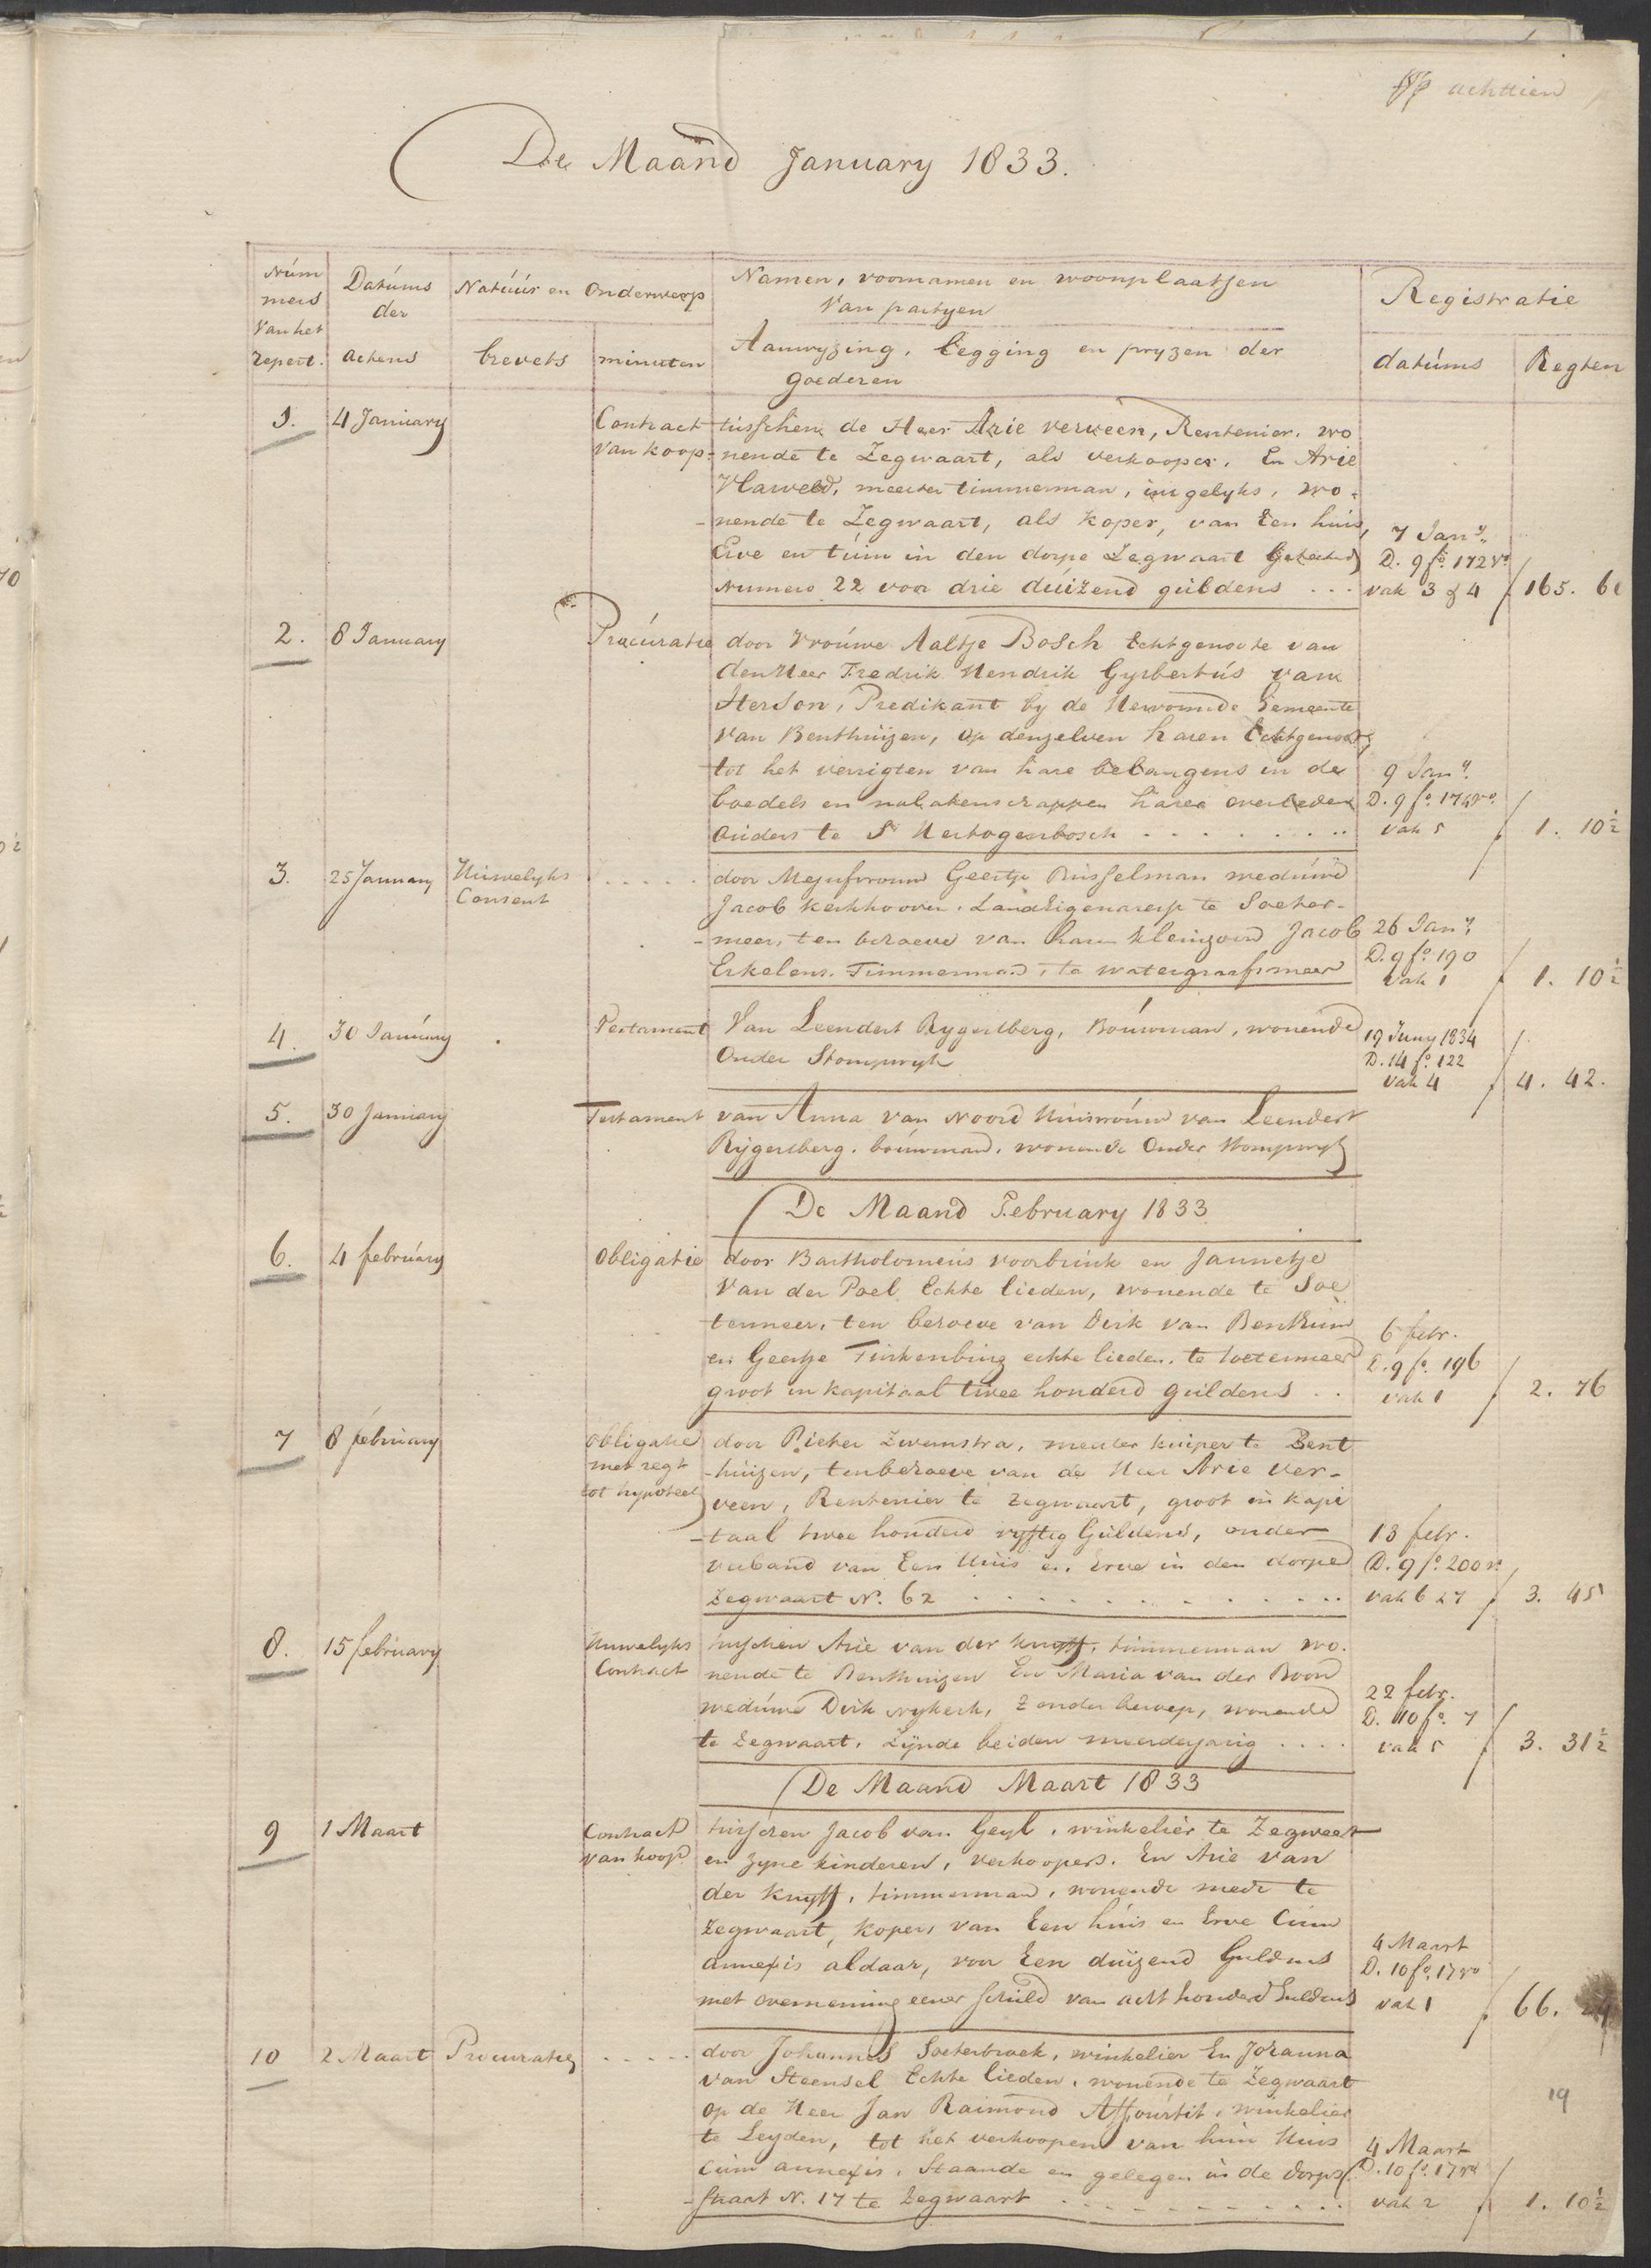 achttien
De Maand January 1833.
Núm
mers
Van het
repert.
Datúms
der
Actens
Natúúr en Onderwerp
brevets
minuten
Namen, voornamen en woonplaatsen
Van partyen
Aanwyzing, legging en pryzen der
goederen
Registratie
datúms
Regten
1. 4 January Contract tusschen de Heer Arie verveen, Rentenier, wo
van koop- nende te Zegwaart, als verkooper. En Arie
meester timmerman, ingelyks, wo-
-nende te Zegwaart, als koper, van Een huis,
Erve en tuin in den dorpe Zegwaart Geteekend
Numero 22 voor drie duizend guldens ...
7 Jany.
D. 9 fo. 172 vo
vak 3 & 4 f 165. 6
2. 8 January Procúratie door Vroúwe Aaltje Bosch Echtgenoote van
den Heer Fredrik Hendrik Gysbertús van
Herson, Predikant by de Hervormde Gemeente
Van Benthuizen, op denzelven haren Echtgenoot
tot het verrigten van hare belangens in de
boedels en nalatenschappen harer overleden
Ouders te S Hertogenbosch ........
9 Jany.
D. 9 fo. 174 vo
vak 5 f 1. 10½
3. 25 January Huwelyks
Consent
..... door Mejufvrouw Geertje Busselman weduwe
Jacob Kerkhooven, Landeigenaresse te Soeter-
-meer, ten behoeve van haren kleinzoon Jacob
Erkelens. Timmerman, te watergraafsmeer
26 Jany
D. 9 fo. 190
Vak 1 f 1. 10½
4. 30 January Testament Van Leendert Rygersberg, Bouwman, wonende
Onder Stompwyk
19 Juny 1834
D. 14 fo. 122
vak 4 f 4. 42.
5. 30 January Testament van Anna van Noord Huisvrouw van Leendert
Rygersberg. bouwman. wonende Onder Stompwyk
De Maand February 1833
6. 4 february Obligatie door Bartholomeus voorbrink en Jannetje
Van der Poel Echte lieden, wonende te Soe
termeer, ten behoeve van Dirk van Benthúm
en Geertje echte lieden, te Soetermeer
groot in kapitaal twee honderd guldens ..
6 febr.
D. 9 fo. 196
vak 1 f 2. 76
7 8 february Obligatie
met regt
tot hypoteek
door Pieter Zwemstra, meester kuiper te Bent
-huizen, ten behoeve van de Heer Arie Ver-
veen, Rentenier te Zegwaart, groot in kapi
-taal twee honderd vyftig Guldens, onder
verband van Een Huis en Erve in den dorpe
Zegwaart No. 62 ............
13 febr.
D. 9 fo. 200 vo
vak 6 & 7 f 3. 45
8. 15 february Huwelyks
Contract
tusschen Arie van der Knyff, timmerman wo.
nende te Benthuizen En Maria van der Boon
weduwe Dirk nykerk, zonder beroep, wonende
te Zegwaart. Zynde beiden meerderjarig ....
22 febr.
D. 10 fo. 7
vak 5 f 3. 31½
De Maand Maart 1833
9 1 Maart Contract
van koop
tusschen Jacob van Geyl, winkelier te Zegwaart
en zyne kinderen, verkoopers. En Arie van
der Knyff, timmerman, wonende mede te
Zegwaart, koper, van Een huis en Erve Cum
annexis aldaar, voor Een duizend Guldens
met overneming eener schuld van acht honderd Guldens
4 Maart
D. 10 fo. 17 vo
vak 1 f 66.
10 2 Maart Procuratie ..... door Johannes Soeterbroek, winkelier En Johanna
van Steensel Echte lieden, wonende te Zegwaart
op de Heer Jan Raimond Affourtit, winkelier
te Leyden, tot het verkoopen van hún Huis
cum annexis, Staande en gelegen in de dorps
-straat N. 17 te Zegwaart ...........
4 Maart
D. 10 fo. 17 vo
vak 2 f 1. 10½
19